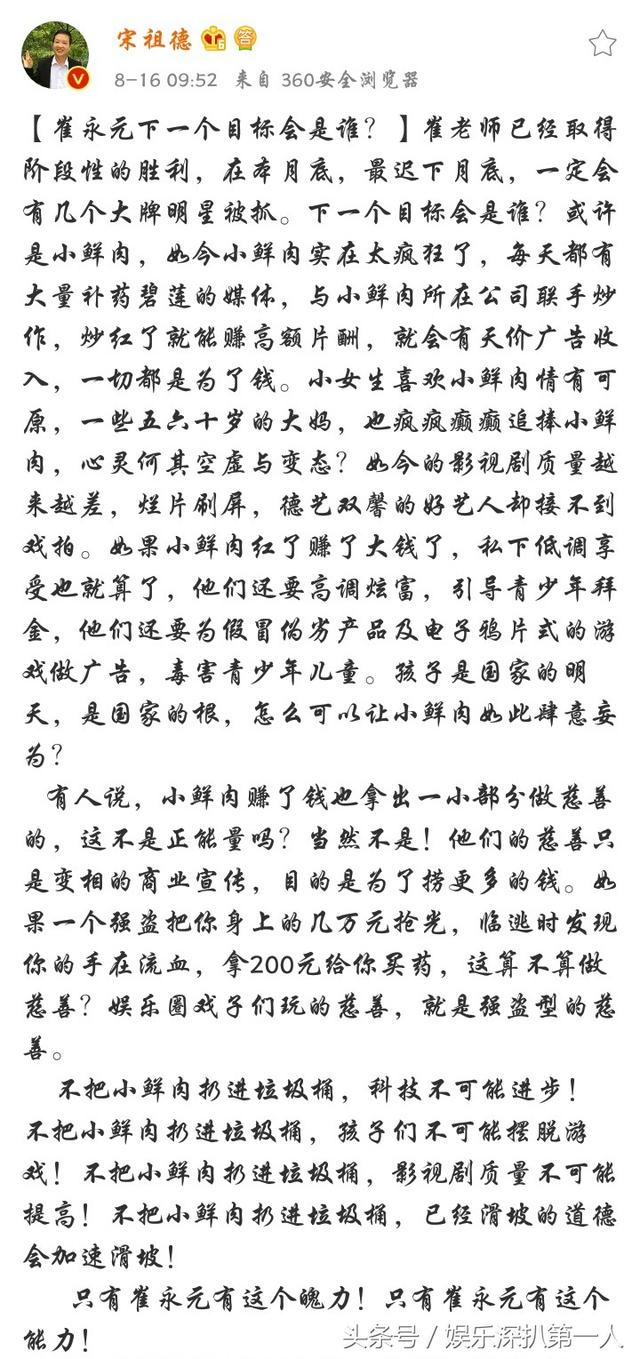 宋祖德
8-16 09:52 来自 360安全浏览器
【崔永元下一个目标会是谁？】崔老师已经取得
阶段性的胜利，在本月底，最迟下月底，一定会
有几个大牌明星被抓。下一个目标会是谁？或许
是小鲜肉，如今小鲜肉实在太疯狂了，每天都有
大量补药碧莲的媒体，与小鲜肉所在公司联手炒
作，炒红了就能赚高额片酬，就会有天价广告收
入，一切都是为了钱。小女生喜欢小鲜肉情有可
原，一些五六十岁的大妈，也疯疯癫癫追捧小鲜
肉，心灵何其空虚与变态？如今的影视剧质量越
来越差，烂片刷屏，德艺双馨的好艺人却接不到
戏拍。如果小鲜肉红了赚了大钱了，私下低调享
受也就算了，他们还要高调炫富，引导青少年拜
金，他们还要为假冒伪劣产品及电子鸦片式的游
戏做广告，毒害青少年儿童。孩子是国家的明
天，是国家的根，怎么可以让小鲜肉如此肆意妄
为？
有人说，小鲜肉赚了钱也拿出一小部分做慈善
的，这不是正能量吗？当然不是！他们的慈善只
是变相的商业宣传，目的是为了捞更多的钱。如
果一个强盗把你身上的几万元抢光，临逃时发现
你的手在流血，拿200元给你买药，这算不算做
慈善？娱乐圈戏子们玩的慈善，就是强盗型的慈
善。
不把小鲜肉扔进垃圾桶，科技不可能进步！
不把小鲜肉扔进垃圾桶，孩子们不可能摆脱游
戏！不把小鲜肉扔进垃圾桶，影视剧质量不可能
提高！不把小鲜肉扔进垃圾桶，已经滑坡的道德
会加速滑坡！
只有崔永元有这个魄力！只有崔永元有这个
能力！
头条号 / 娱乐深扒第一人